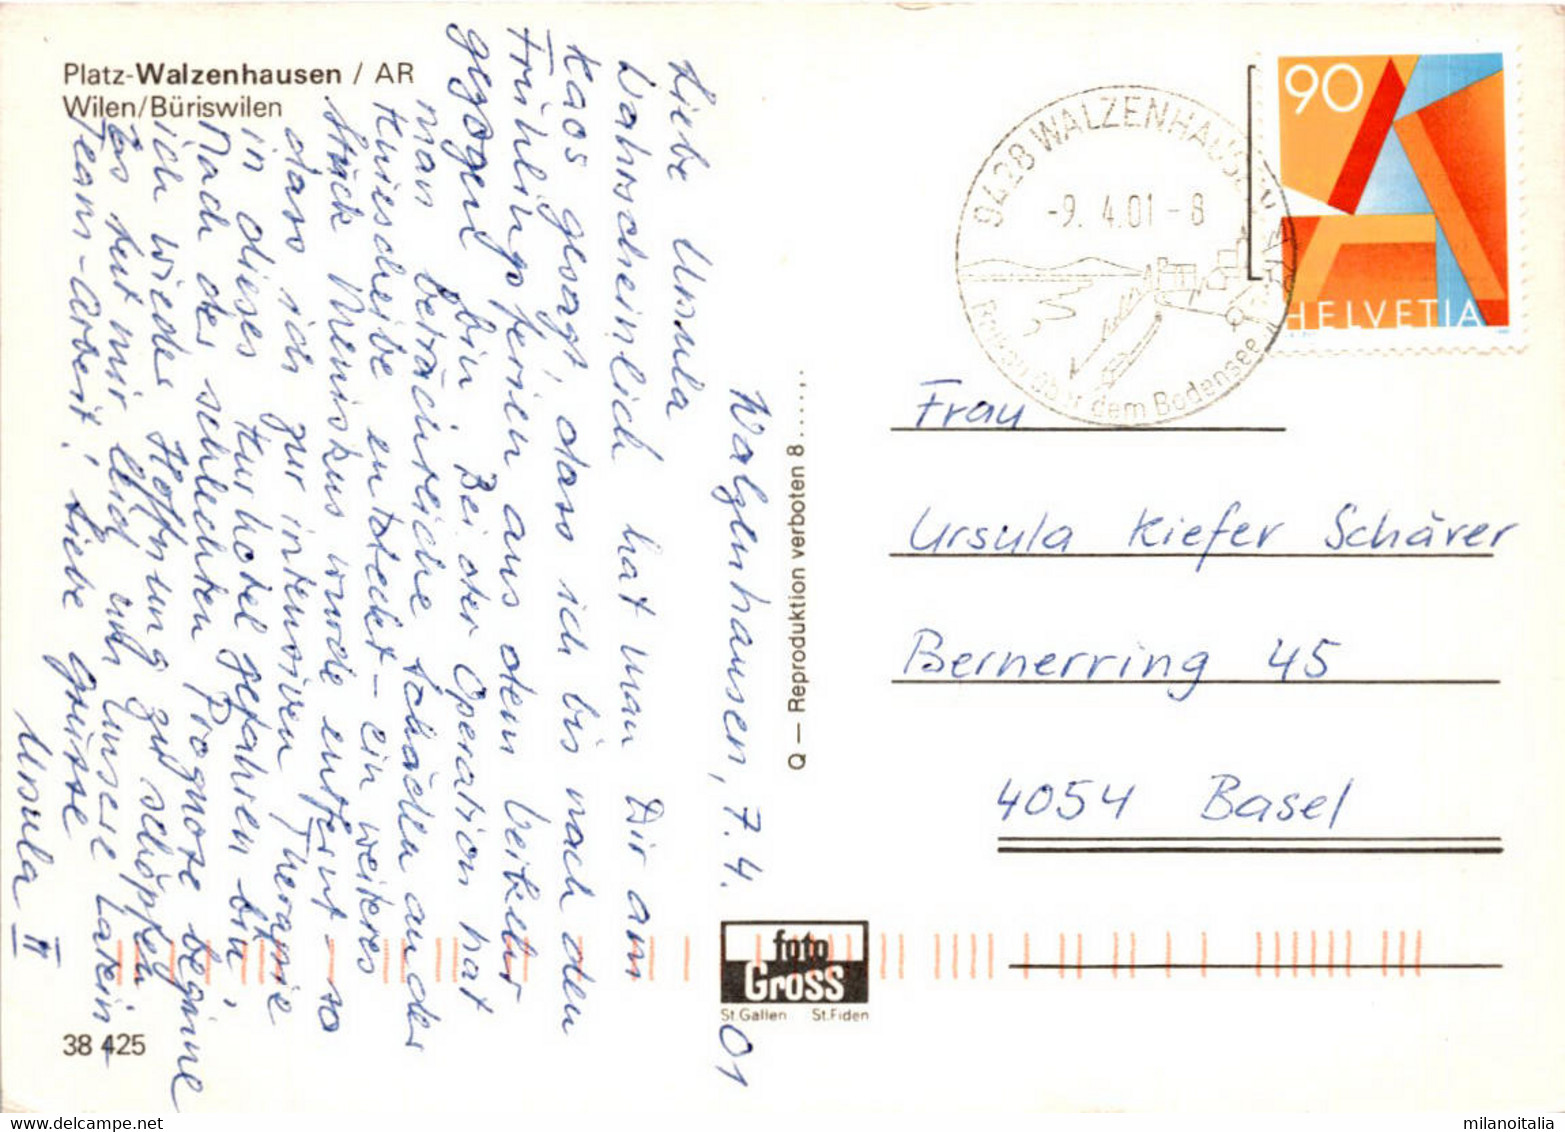 Platz-Walzenhausen / AR
Wilen/Büriswilen
Walzenhausen, 7.4.01
Liebe Ursula
Wahrscheinlich hat man Dir am
Kaos gesagt, dass ich bis nach den
Frühlingsferien aus dem Verkehr
gezogen bin. Bei der Operation hat
man beträchtliche Schäden an der
Kniescheibe entdeckt – ein weiteres
Stück Meniskus wurde entfernt – so
dass ich zur intensiven Therapie
in dieses Kurhotel gefahren bin.
Nach der schlechten Prognose beginne
ich wieder Hoffnung zu schöpfen
Es tut mir leid um unsere Latein-
Team-Arbeit! Liebe Grüsse
Ursula II
38 425
Q — Reproduktion verboten 8.....
foto
Gross
St.Gallen St.Fiden
9428 WALZENHAUSEN
-9. 4.01 - 8
Balkon über dem Bodensee
90
A
HELVETIA
Frau
Ursula Kiefer Schärer
Bernerring 45
4054 Basel
milanoitalia